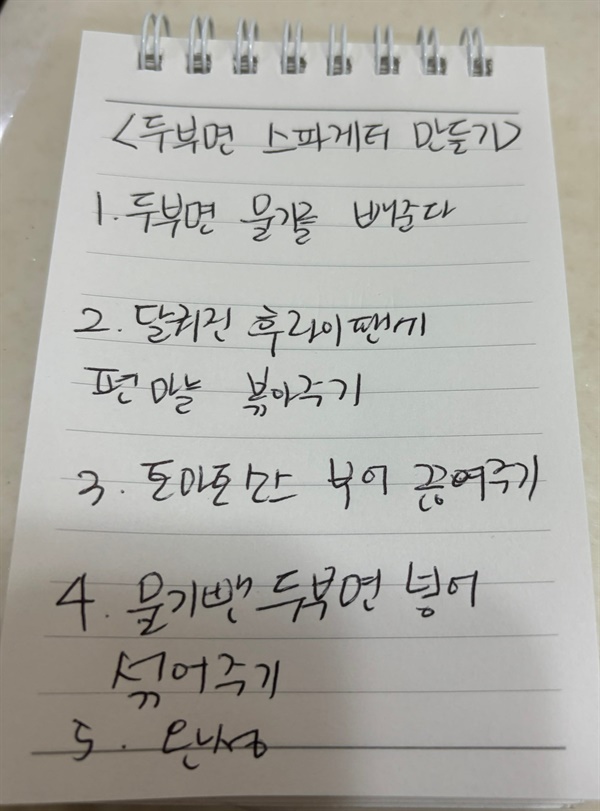 <두부면 스파게티 만들기>
1. 두부면 물기를 빼준다
2. 달궈진 후라이팬에
편마늘 볶아주기
3. 토마토소스 부어 끓여주기
4. 물기뺀 두부면 넣어
섞어주기
5. 완성